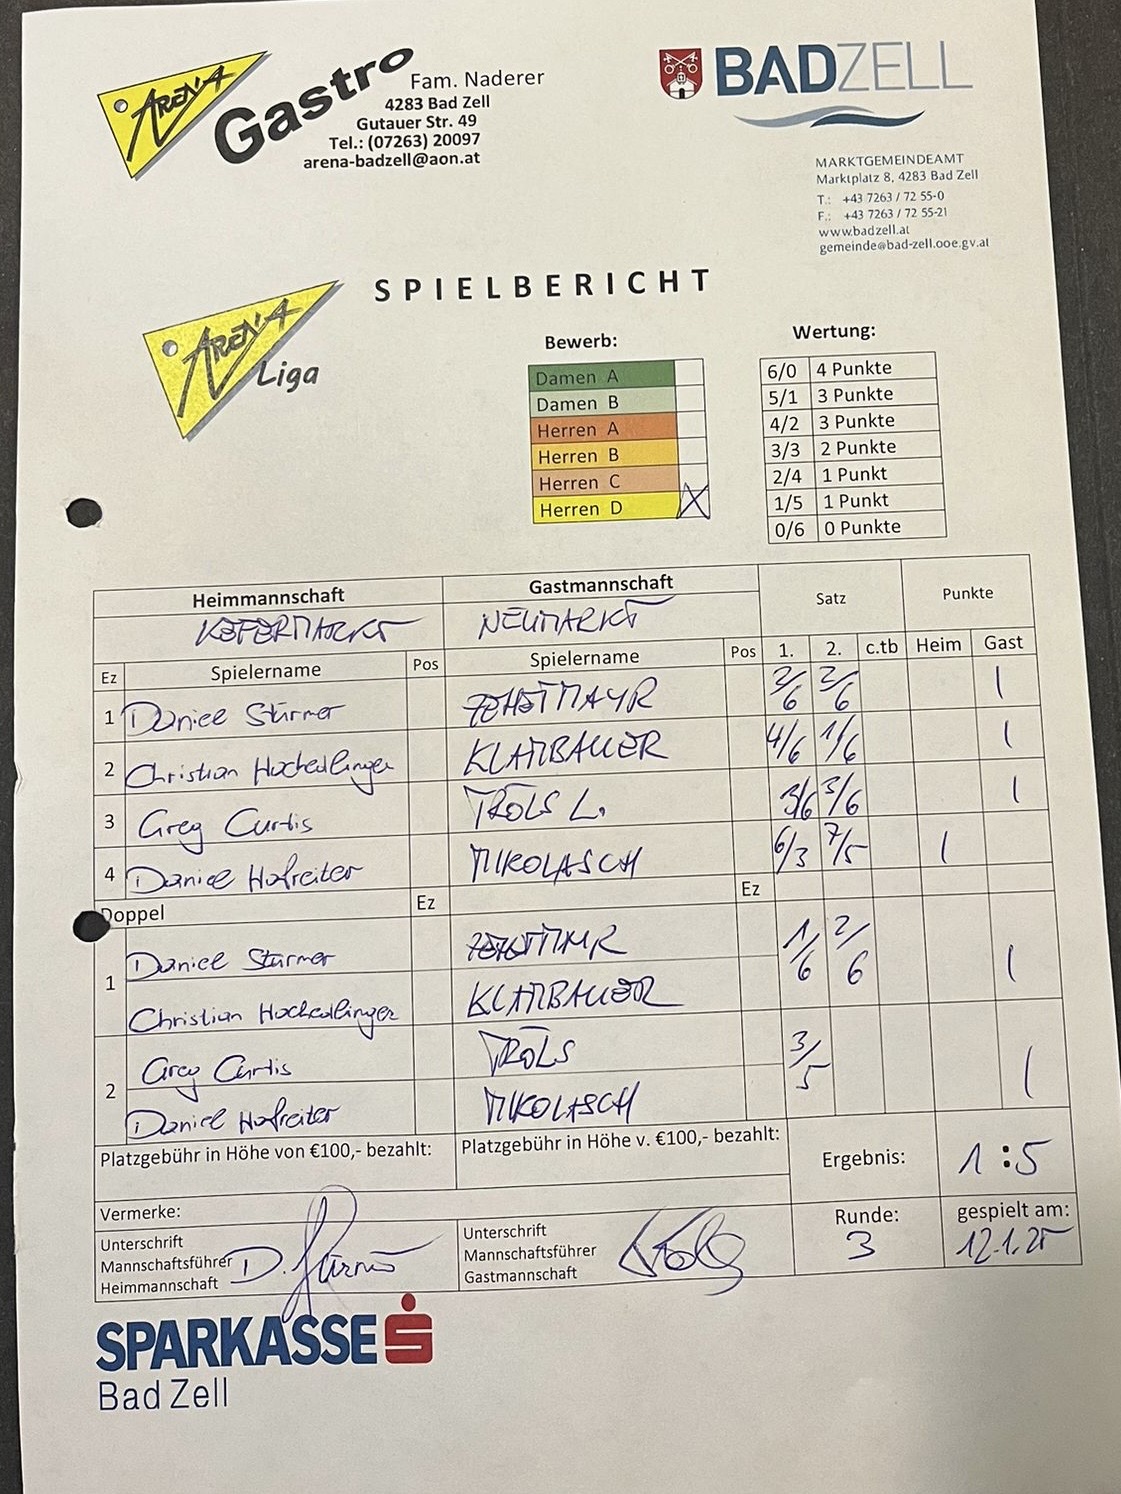 ARENA
Gastro
Fam. Naderer
4283 Bad Zell
Gutauer Str. 49
Tel.: (07263) 20097
arena-badzell@aon.at
BADZELL
MARKTGEMEINDEAMT
Marktplatz 8, 4283 Bad Zell
T.: +43 7263 / 72 55-0
F.: +43 7263 / 72 55-21
www.badzell.at
gemeinde@bad-zell.ooe.gv.at
SPIELBERICHT
ARENA
Liga
Bewerb:
Damen A
Damen B
Herren A
Herren B
Herren C
Herren D X
Wertung:
6/0 4 Punkte
5/1 3 Punkte
4/2 3 Punkte
3/3 2 Punkte
2/4 1 Punkt
1/5 1 Punkt
0/6 0 Punkte
Heimmannschaft Gastmannschaft Satz Punkte
KEFERMARKT NEUMARKT
Ez Spielername Pos Spielername Pos 1. 2. c.tb Heim Gast
1 Daniel Stürmer ZEHETMAYR 2/6 2/6 1
2 Christian Hochedlinger KLAMBAUER 4/6 1/6 1
3 Greg Curtis TRÖLS L. 3/6 3/6 1
4 Daniel Hofreiter MIKOLASCH 6/3 7/5 1
Doppel Ez Ez
1 Daniel Stürmer 1/6 2/6 1
Christian Hochedlinger KLAMBAUER
2 Greg Curtis TRÖLS 3/5 1
Daniel Hofreiter MIKOLASCH
Platzgebühr in Höhe von €100,- bezahlt: Platzgebühr in Höhe v. €100,- bezahlt:
Ergebnis: 1 : 5
Vermerke:
Unterschrift
Mannschaftsführer
Heimmannschaft
D. Stürmer
Unterschrift
Mannschaftsführer
Gastmannschaft
Runde:
3
gespielt am:
12.1.25
SPARKASSE
Bad Zell